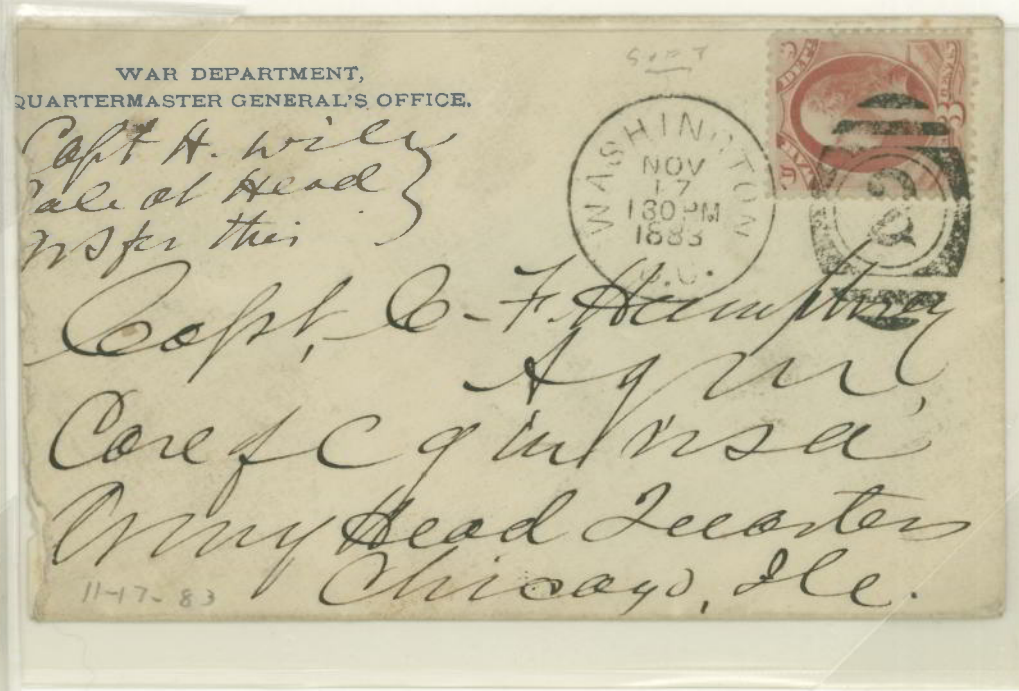 WAR DEPARTMENT,
QUARTERMASTER GENERAL'S OFFICE.
Capt H. will
at Head
for this
WASHINGTON
NOV
17
130 PM
1883
D.C.
Capt, C-F. Humphrey
A q m,
Care of C q m U S a
Army Head Quarters
Chicago, Ill.
11-17-83